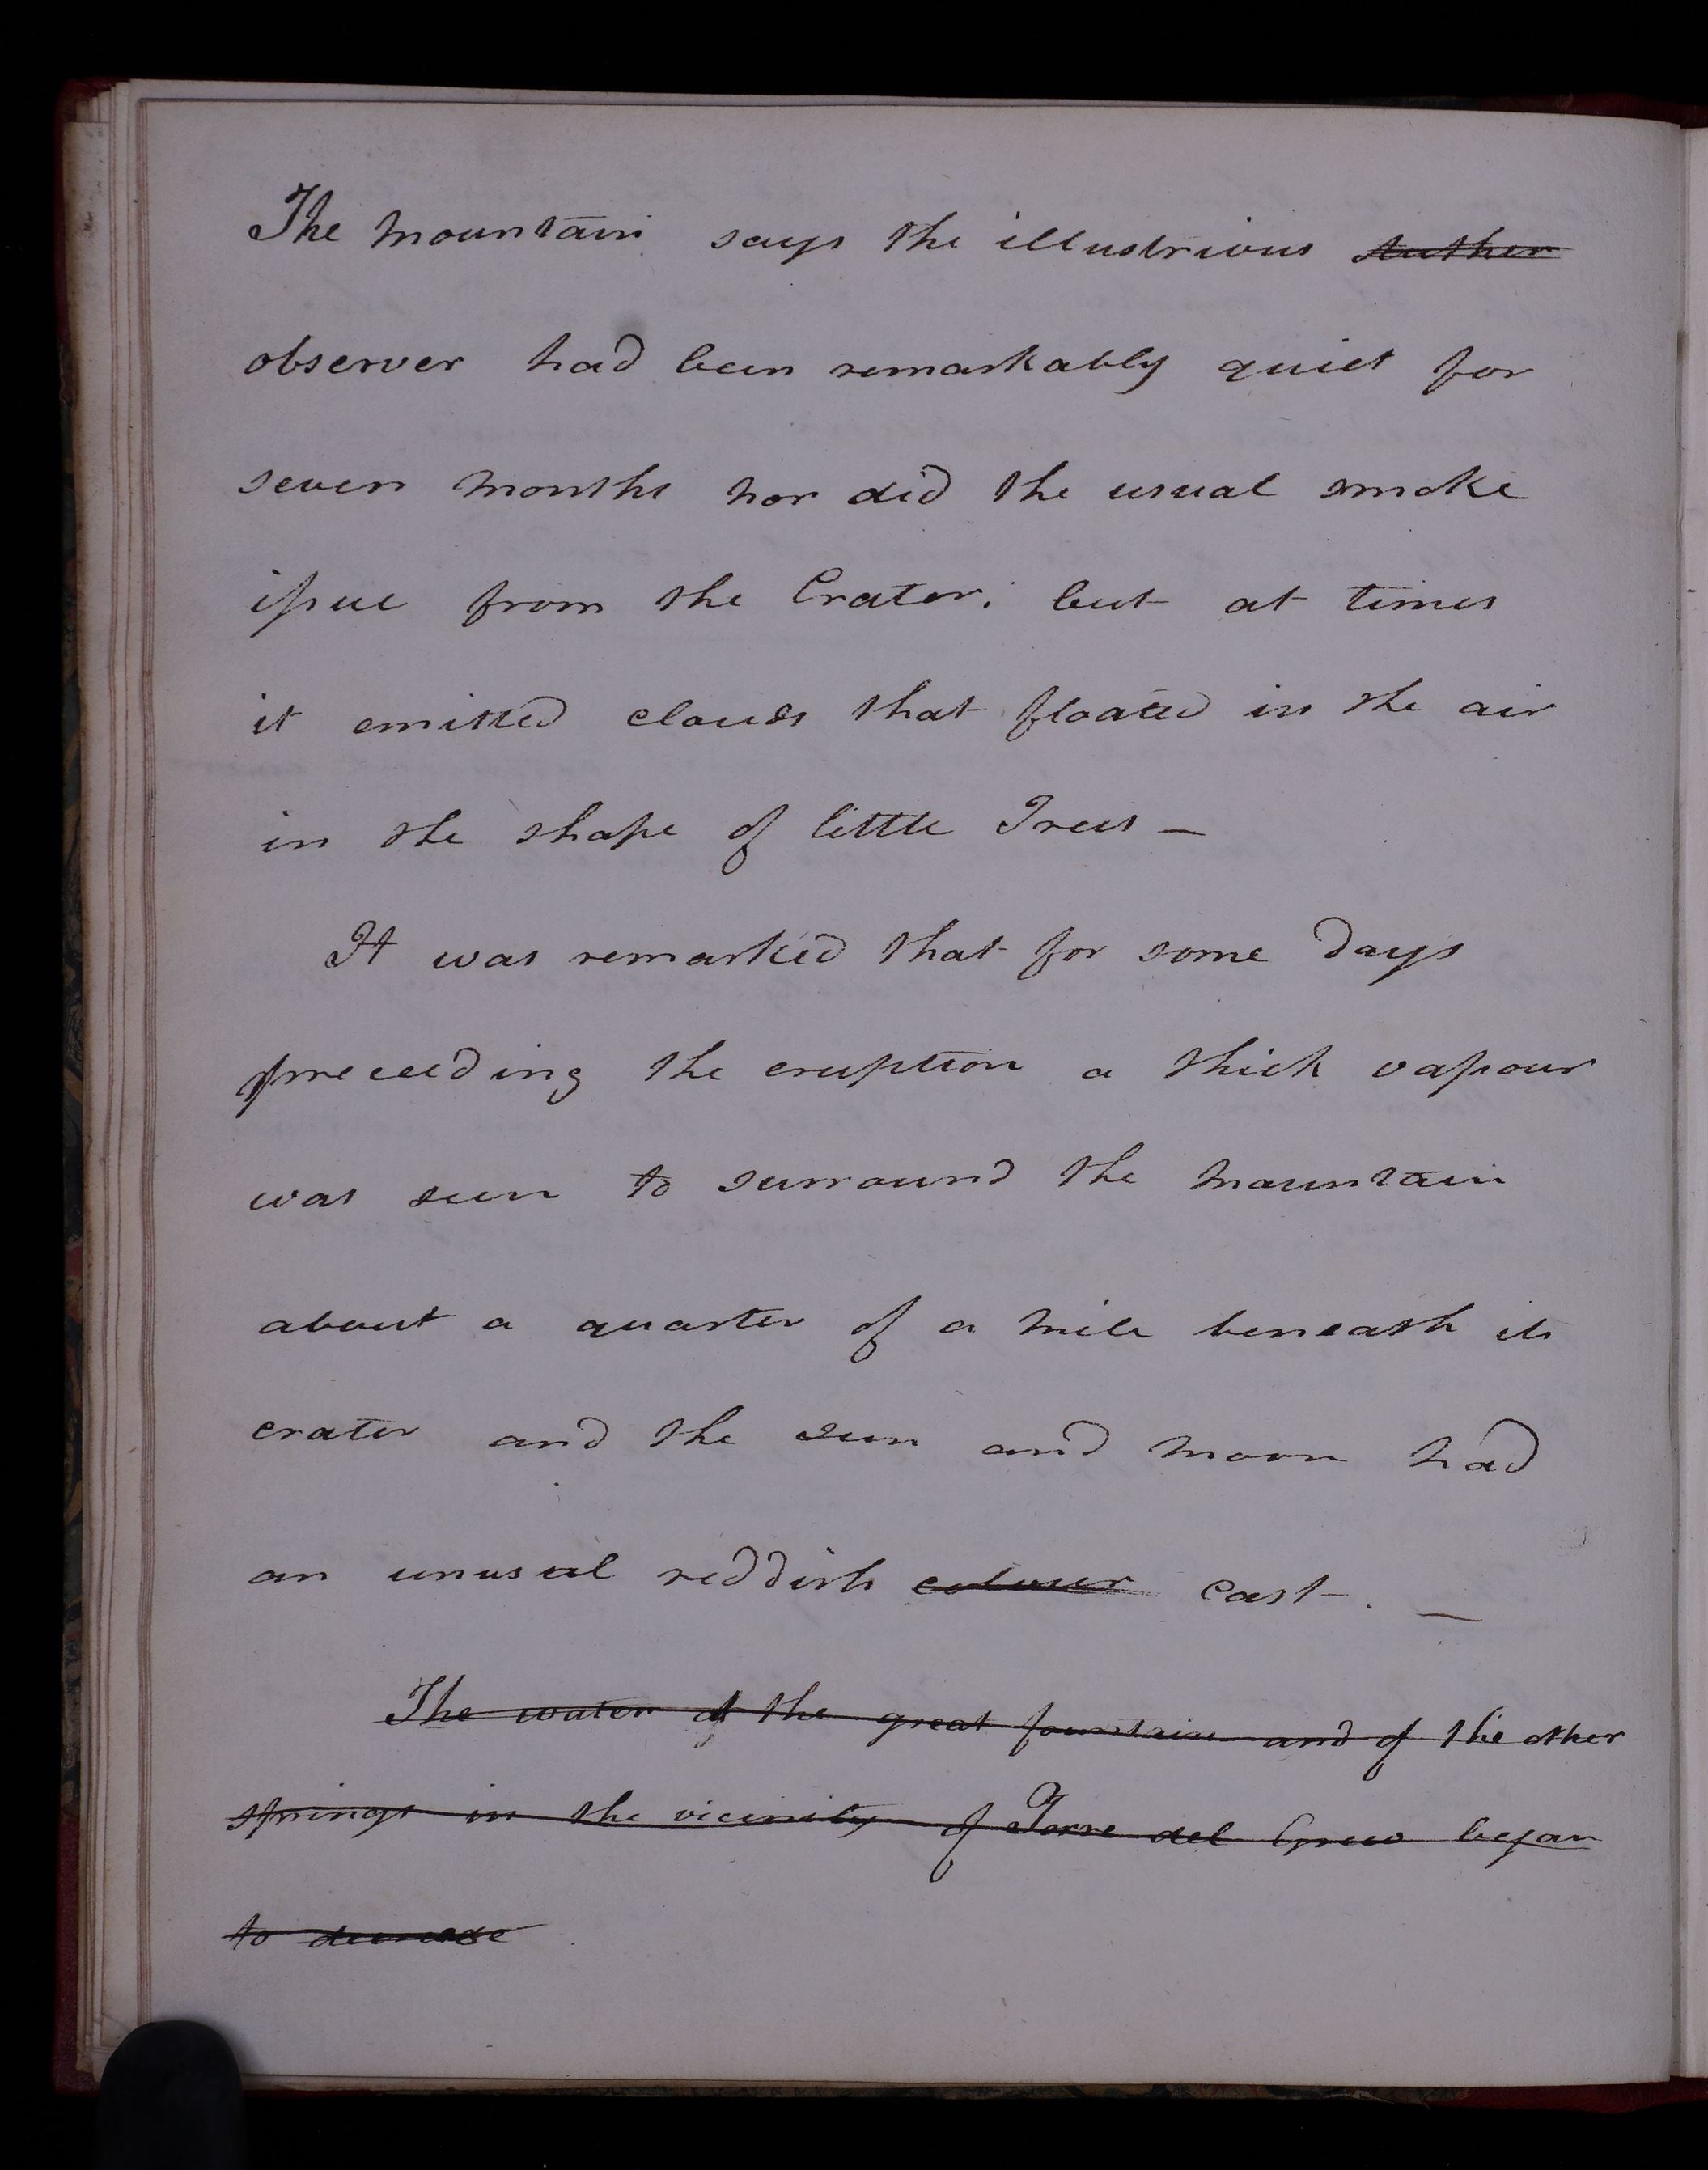 The mountain says the illustrious Author
observer had been remarkably quiet for
seven months nor did the usual smoke
issue from the Crater; but at times
it emitted clouds that floated in the air
in the shape of little Trees —
It was remarked that for some days
preceeding the eruption a thick vapour
was seen to surround the mountain
about a quarter of a mile beneath its
crater and the sun and moon had
an unusual reddish colour cast. —
The water of the great fountain and of the other
springs in the vicinity of Torre del Greco began
to decrease